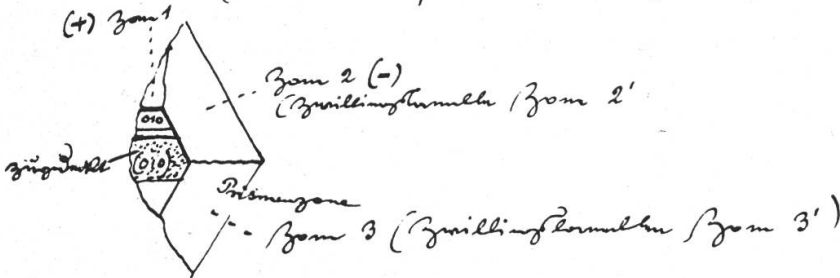 (+) Zone 1
Zone 2 (-)
(Zwillingslamellen Zone 2'
010
zugedeckt
(010)
Prismenzone
Zone 3 (Zwillingslamellen Zone 3')